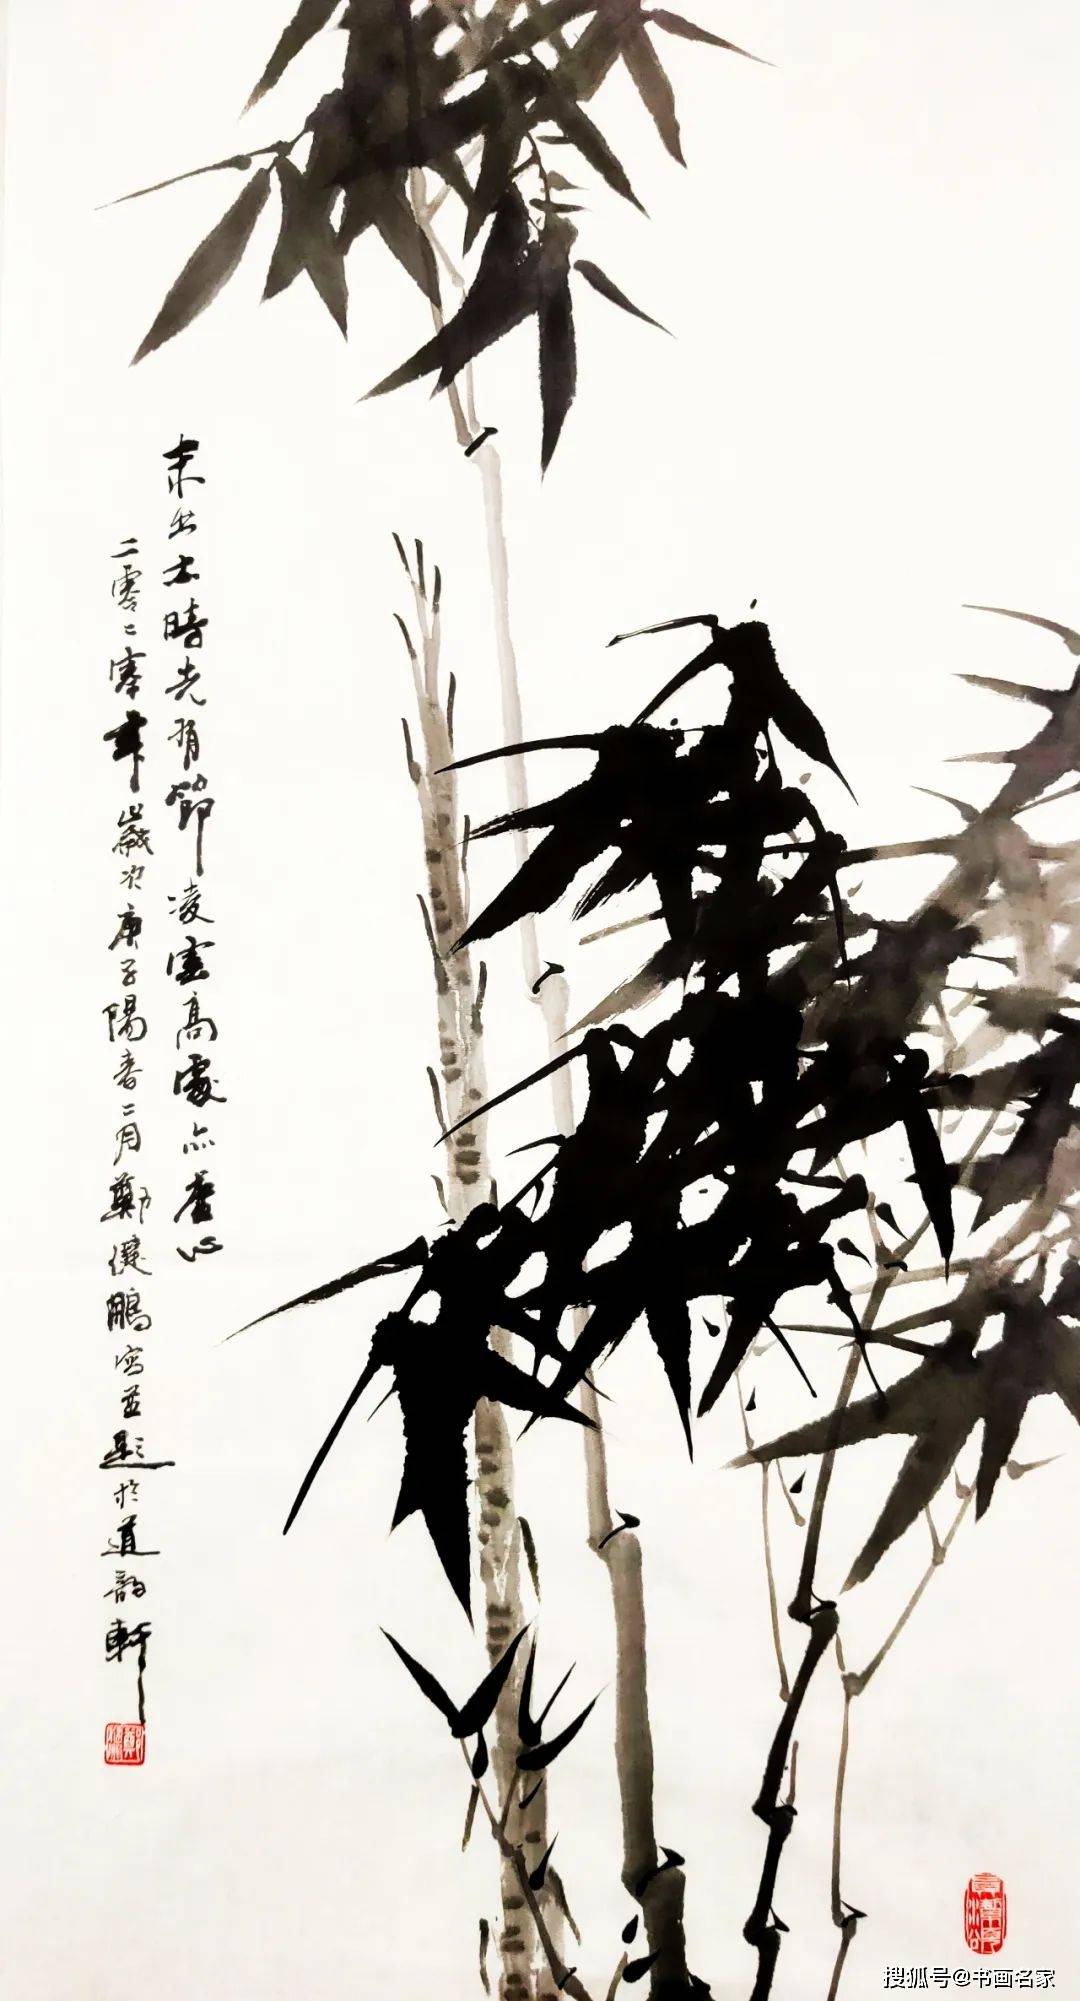 未出土時先有節凌雲高處亦虛心
二零二零年歲次庚子陽春二月鄭健鵬寫並題於道韵軒
搜狐号@书画名家